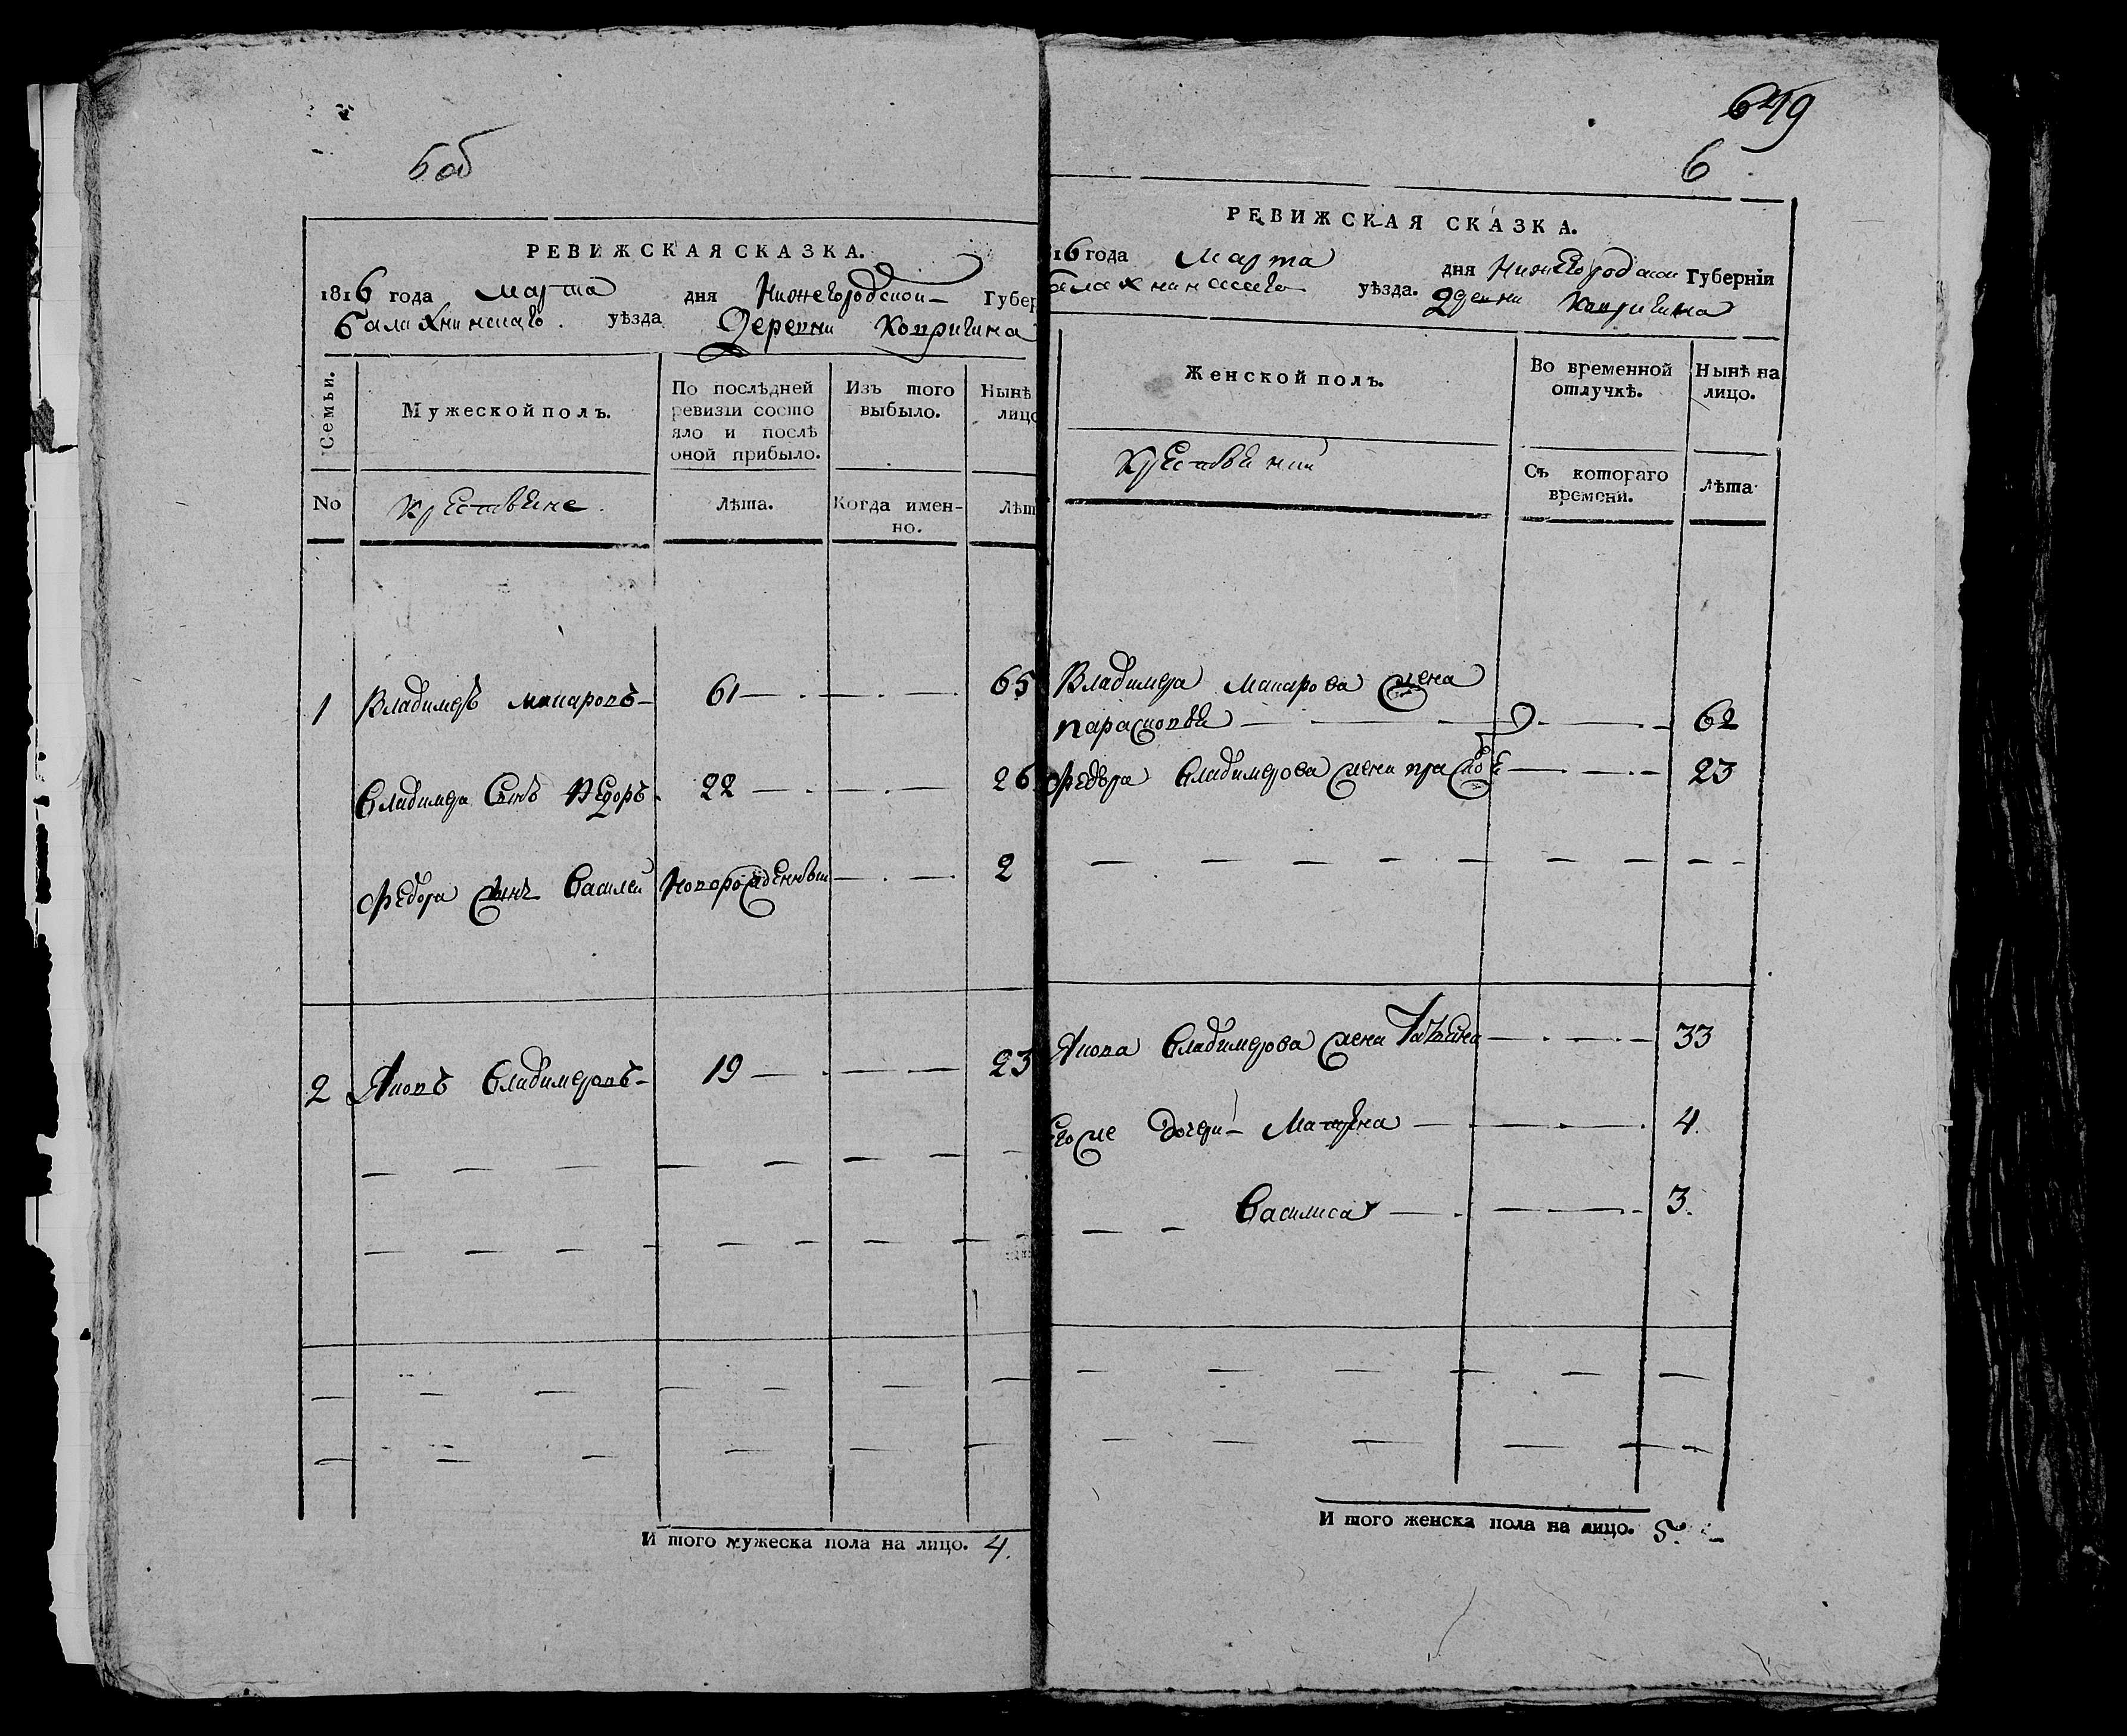 5 об
РЕВИЖСКАЯ СКАЗКА.
1816 года Марта дня Нижегородской Губер
Балахнинскаго уѣзда Деревни Копригина
Семьи. Мужеской полъ. По послѣдней ревизіи состояло и послѣ оной прибыло. Изъ того выбыло. Нынѣ лицо
No Крестьяне. Лѣта. Когда именно. Лѣт
1 Владимеръ Макаровъ 61 65
Владимера Сынъ Федоръ 22 26
Федора сынъ Василей Новорожденный 2
2 Яковъ Владимеровъ 19 23
И того мужеска пола на лицо. 4.
649
6
РЕВИЖСКАЯ СКАЗКА.
16 года Марта дня Нижегородской Губерніи
Балахнинскаго уѣзда. Деревни Копригина
Женской полъ. Во временной отлучкѣ. Нынѣ на лицо.
Крестьянки Съ котораго времени. Лѣта
Владимера Макарова жена
Парасковья 62
Федора Владимерова жена Прасковья 23
Якова Владимерова жена Татьяна 33
Его же дочери Матрена 4.
Василиса 3.
И того женска пола на лицо. 5.